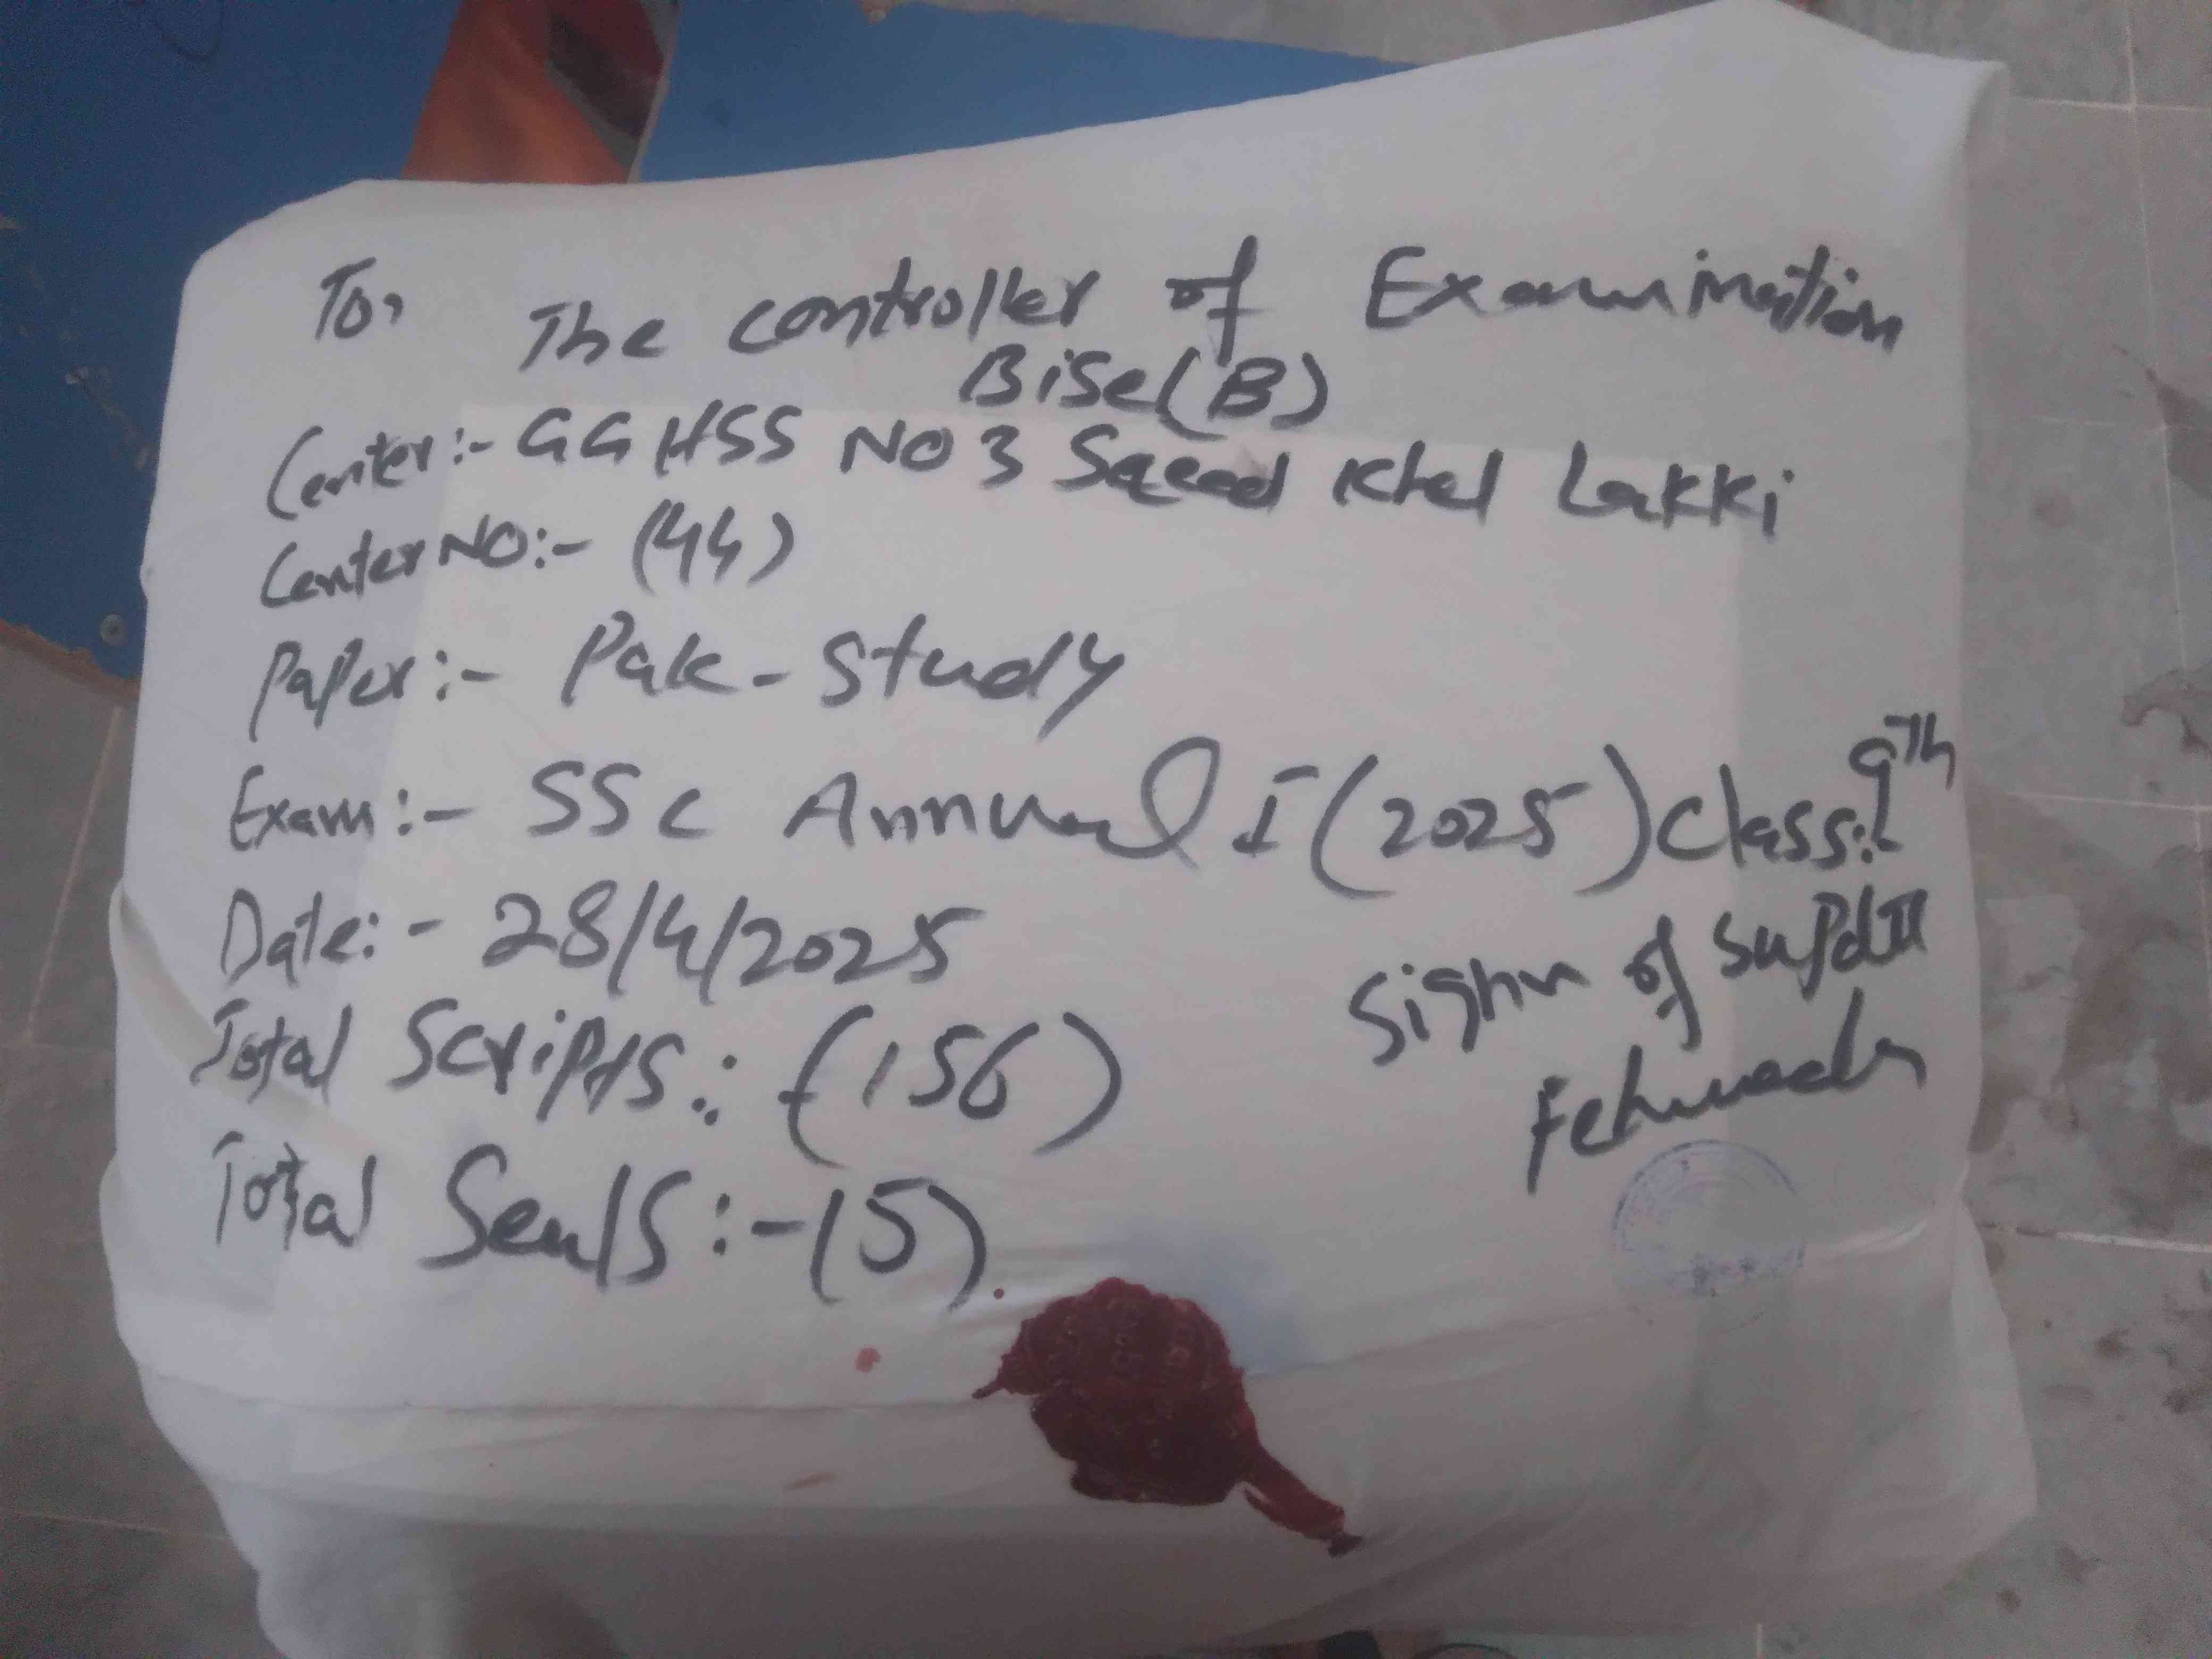 To, The Controller of Examination
Bise(B)
Center:- GGHSS NO 3 Saeed Khel Lakki
Center NO:- (44)
Paper:- Pak-Study
Exam:- SSC Annual I (2025) Class: 9th
Date:- 28/4/2025
Total Scripts:- (156)
Total Seals:- (5)
Sighn of Supdtt